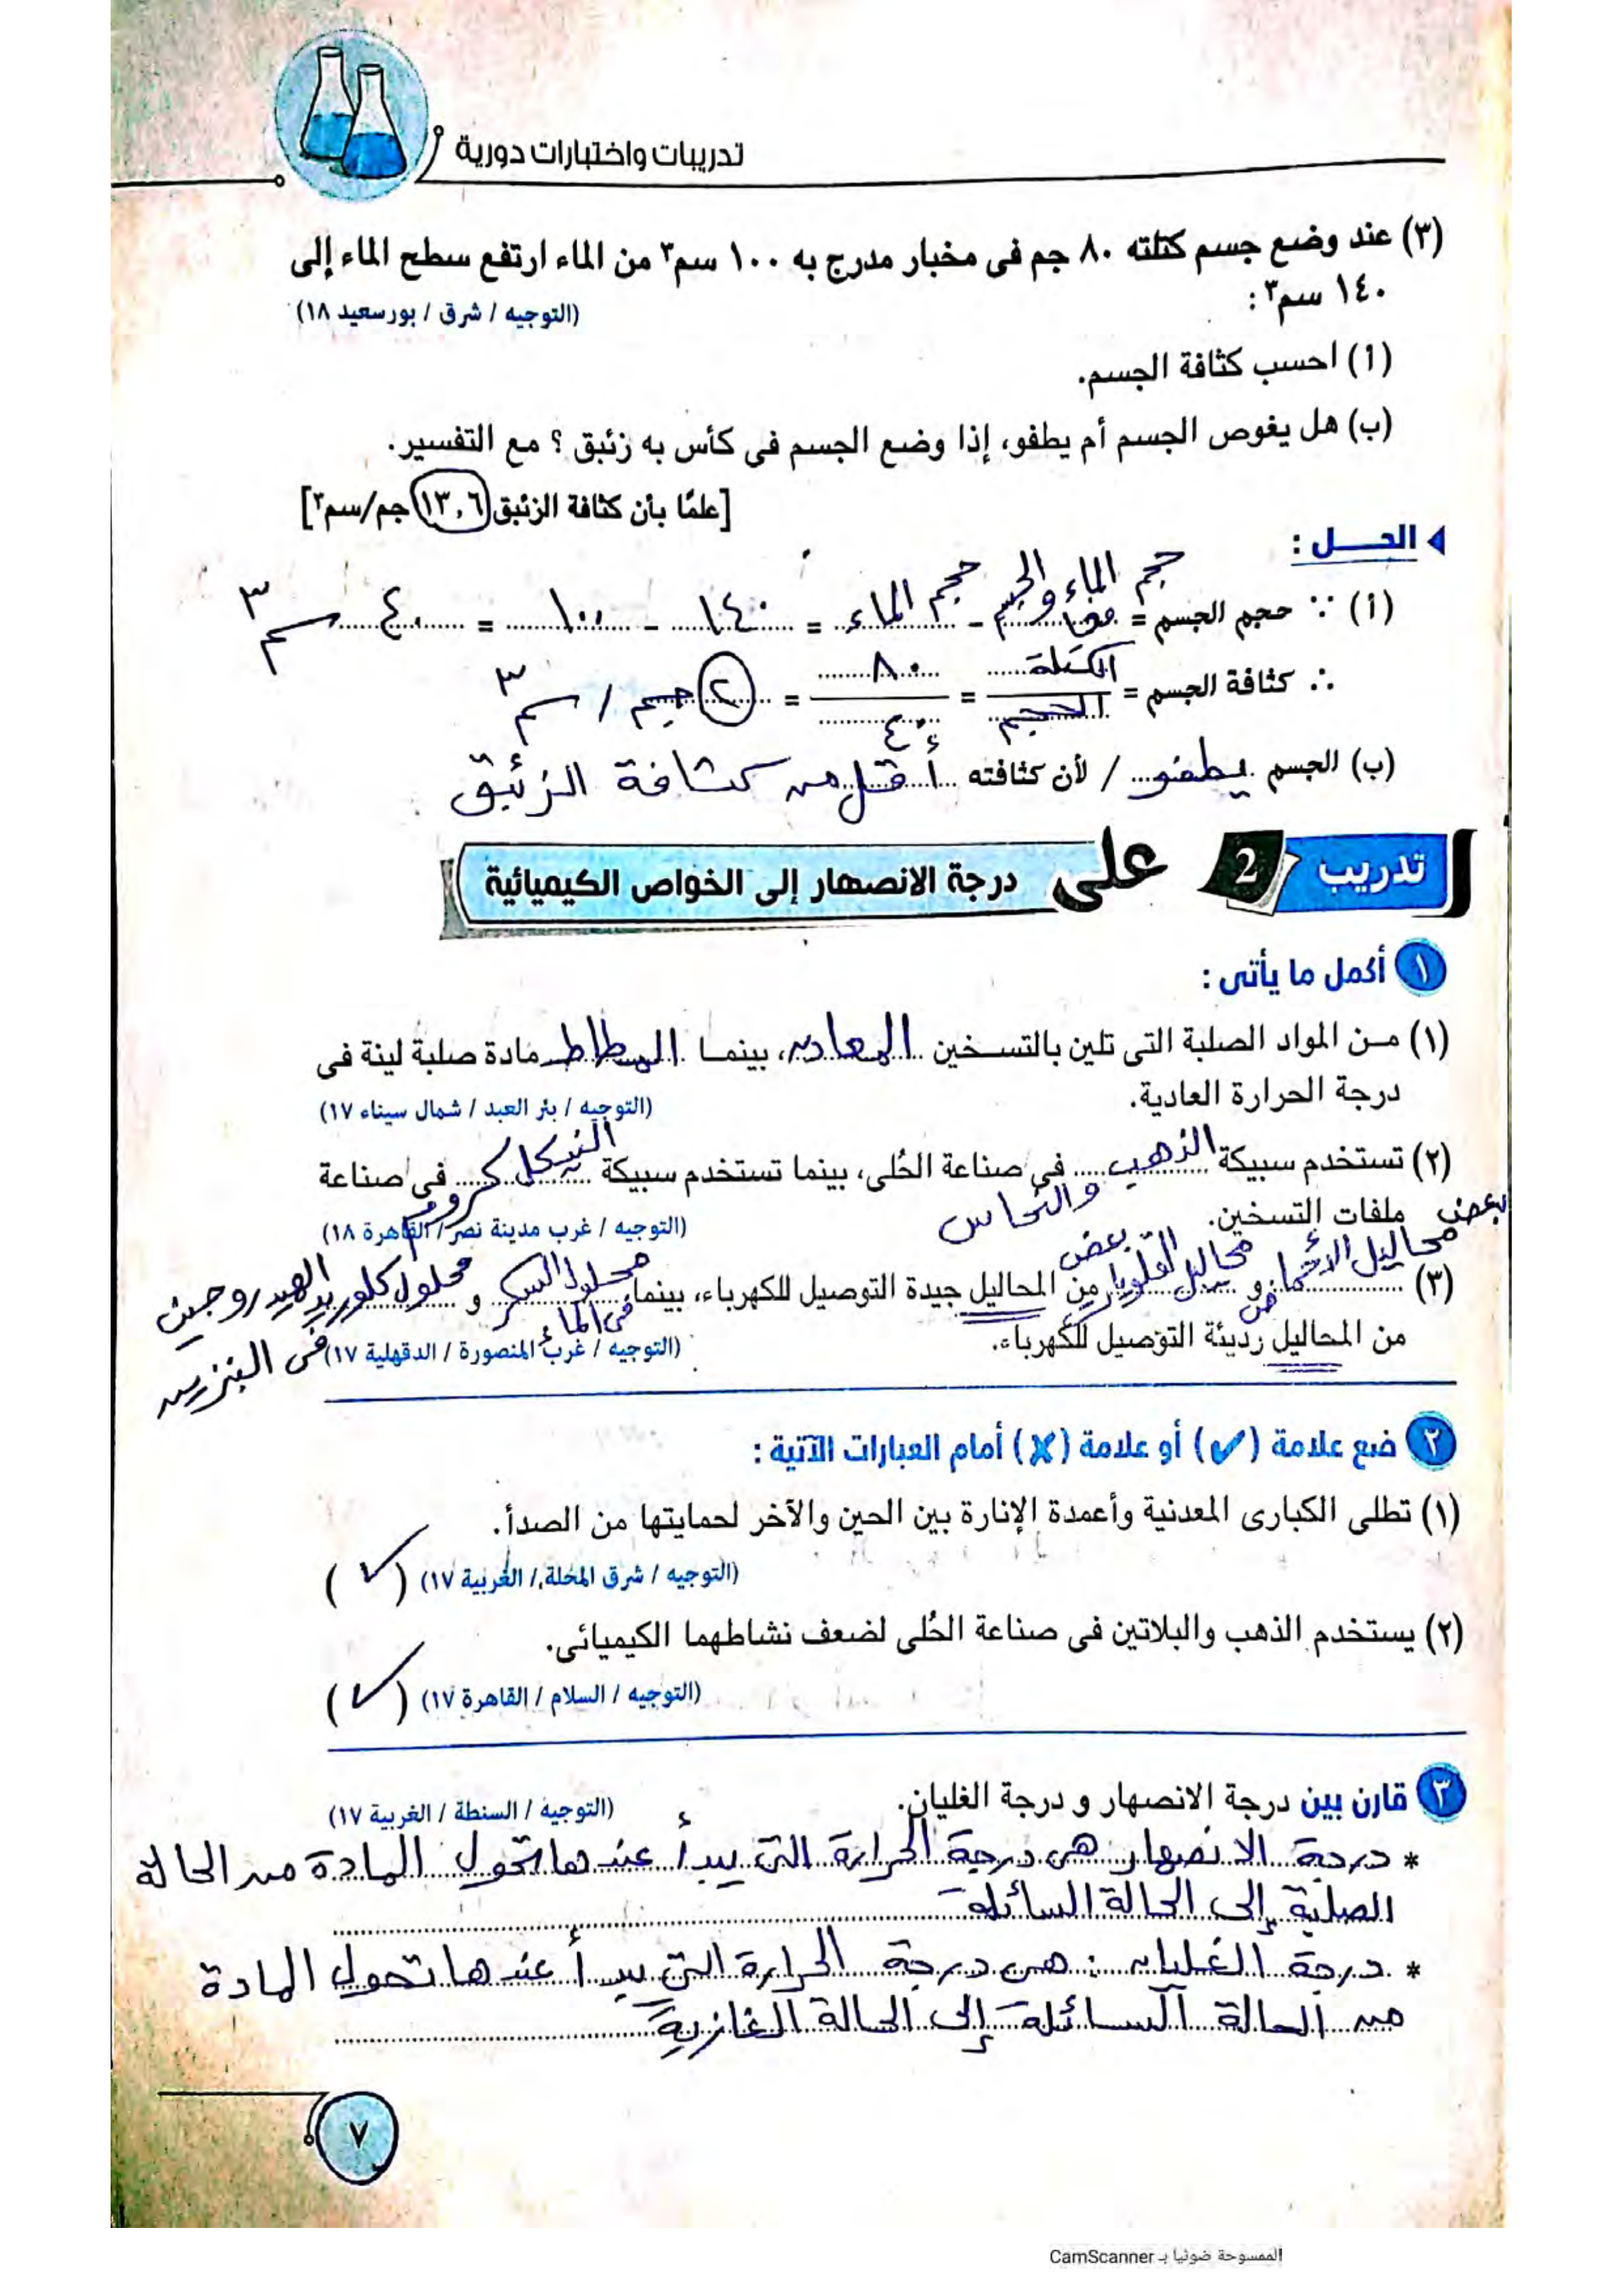 تدريبات واختبارات دورية
(٣) عند وضع جسم كتلته ٨٠ جم فى مخبار مدرج به ١٠٠ سم٣ من الماء ارتفع سطح الماء إلى
١٤٠ سم٣ :
(التوجيه / شرق / بورسعيد ١٨)
(أ) احسب كثافة الجسم.
(ب) هل يغوص الجسم أم يطفو، إذا وضع الجسم فى كأس به زئبق ؟ مع التفسير.
[علمًا بأن كثافة الزئبق ١٣,٦ جم/سم٣]
الحـــل :
(أ) ∵ حجم الجسم = حجم الماء والجسم معًا - حجم الماء = ١٤٠ - ١٠٠ = ٤٠ سم٣
∴ كثافة الجسم = الكتلة / الحجم = ٨٠ / ٤٠ = ٢ جم / سم٣
(ب) الجسم يطفو / لأن كثافته أقل من كثافة الزئبق
تدريب 2 على درجة الانصهار إلى الخواص الكيميائية
١ أكمل ما يأتى :
(١) مـن المواد الصلبة التى تلين بالتسـخين المعادن، بينمـا المطاط مادة صلبة لينة فى
درجة الحرارة العادية.
(التوجيه / بئر العبد / شمال سيناء ١٧)
(٢) تستخدم سبيكة الذهب والنحاس فى صناعة الحُلى، بينما تستخدم سبيكة النيكل كروم فى صناعة
ملفات التسخين.
(التوجيه / غرب مدينة نصر / القاهرة ١٨)
(٣) بعض محاليل الأحماض و بعض محاليل القلويات من المحاليل جيدة التوصيل للكهرباء، بينما محلول السكر فى الماء و محلول كلوريد الهيدروجين فى البنزين
من المحاليل رديئة التوصيل للكهرباء.
(التوجيه / غرب المنصورة / الدقهلية ١٧)
٢ ضع علامة (✓) أو علامة (✗) أمام العبارات الآتية :
(١) تطلى الكبارى المعدنية وأعمدة الإنارة بين الحين والآخر لحمايتها من الصدأ.
(التوجيه / شرق المحلة / الغربية ١٧) (✓)
(٢) يستخدم الذهب والبلاتين فى صناعة الحُلى لضعف نشاطهما الكيميائى.
(التوجيه / السلام / القاهرة ١٧) (✓)
٣ قارن بين درجة الانصهار و درجة الغليان.
(التوجيه / السنطة / الغربية ١٧)
* درجة الانصهار هى درجة الحرارة التى يبدأ عندها تحول المادة من الحالة
الصلبة إلى الحالة السائلة
* درجة الغليان : هى درجة الحرارة التى يبدأ عندها تحول المادة
من الحالة السائلة إلى الحالة الغازية
٧
الممسوحة ضوئيا بـ CamScanner